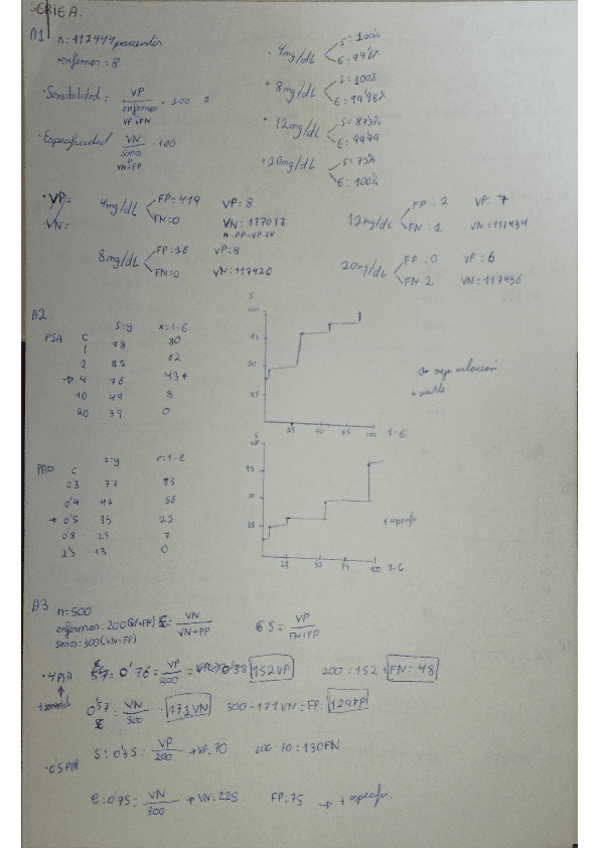 SERIE A.
A1 n=117444 pacientes
• enfermos = 8
• Sensibilidad = VP / enfermos · 100
VP+FN
• Especificidad VN / sanos · 100
VN+FP
• 4mg/dL S=100%
E=99'6%
• 8mg/dL S=100%
E=99'98%
• 12mg/dL S=87'5%
E=99'99
• 20mg/dL S=75%
E=100%
• VP=
VN=
4mg/dL FP=419 VP=8
FN=0 VN=117017
8mg/dL FP=16 VP=8
FN=0 VN=117420
12mg/dL FP=2 VP=7
FN=1 VN=117434
20mg/dL FP=0 VP=6
FN 2 VN=117436
A2
PSA C S=y x=1-E
1 98 80
2 85 62
4 76 43
10 49 8
20 39 0
S
100
75
50
25
25 50 75 100 1-E
mejor relación
PAD C S=y x=1-E
0'3 77 83
0'4 47 56
0'5 35 25
0'8 25 7
2'5 13 0
S
75
50
25
25 50 75 100 1-E
+ especif
A3 n=500
enfermos: 200 (VP+FN) E= VN / VN+FP S= VP / FN+VP
sanos=300 (VN+FP)
0'76= VP / 200 152VP 200=152+ FN=48
0'57= VN / 300 171VN 300-171VN=FP= 129FP
S=0'35= VP / 200 → VP=70 200-70=130FN
E=0'75= VN / 300 → VN=225 FP=75 → + especif